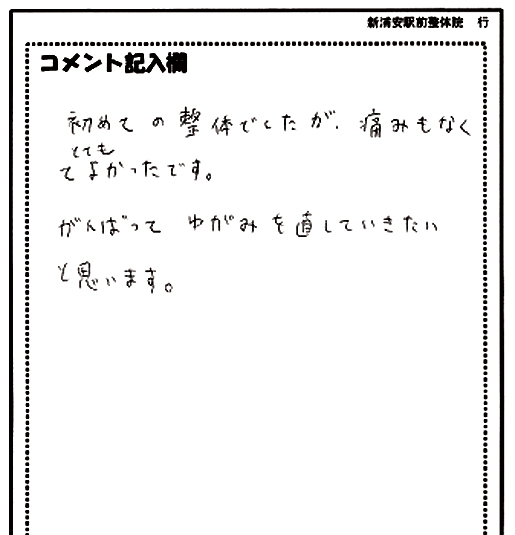 新浦安駅前整体院 行
コメント記入欄
初めての整体でしたが、痛みもなく
とても
てよかったです。
がんばって ゆがみを直していきたい
と思います。